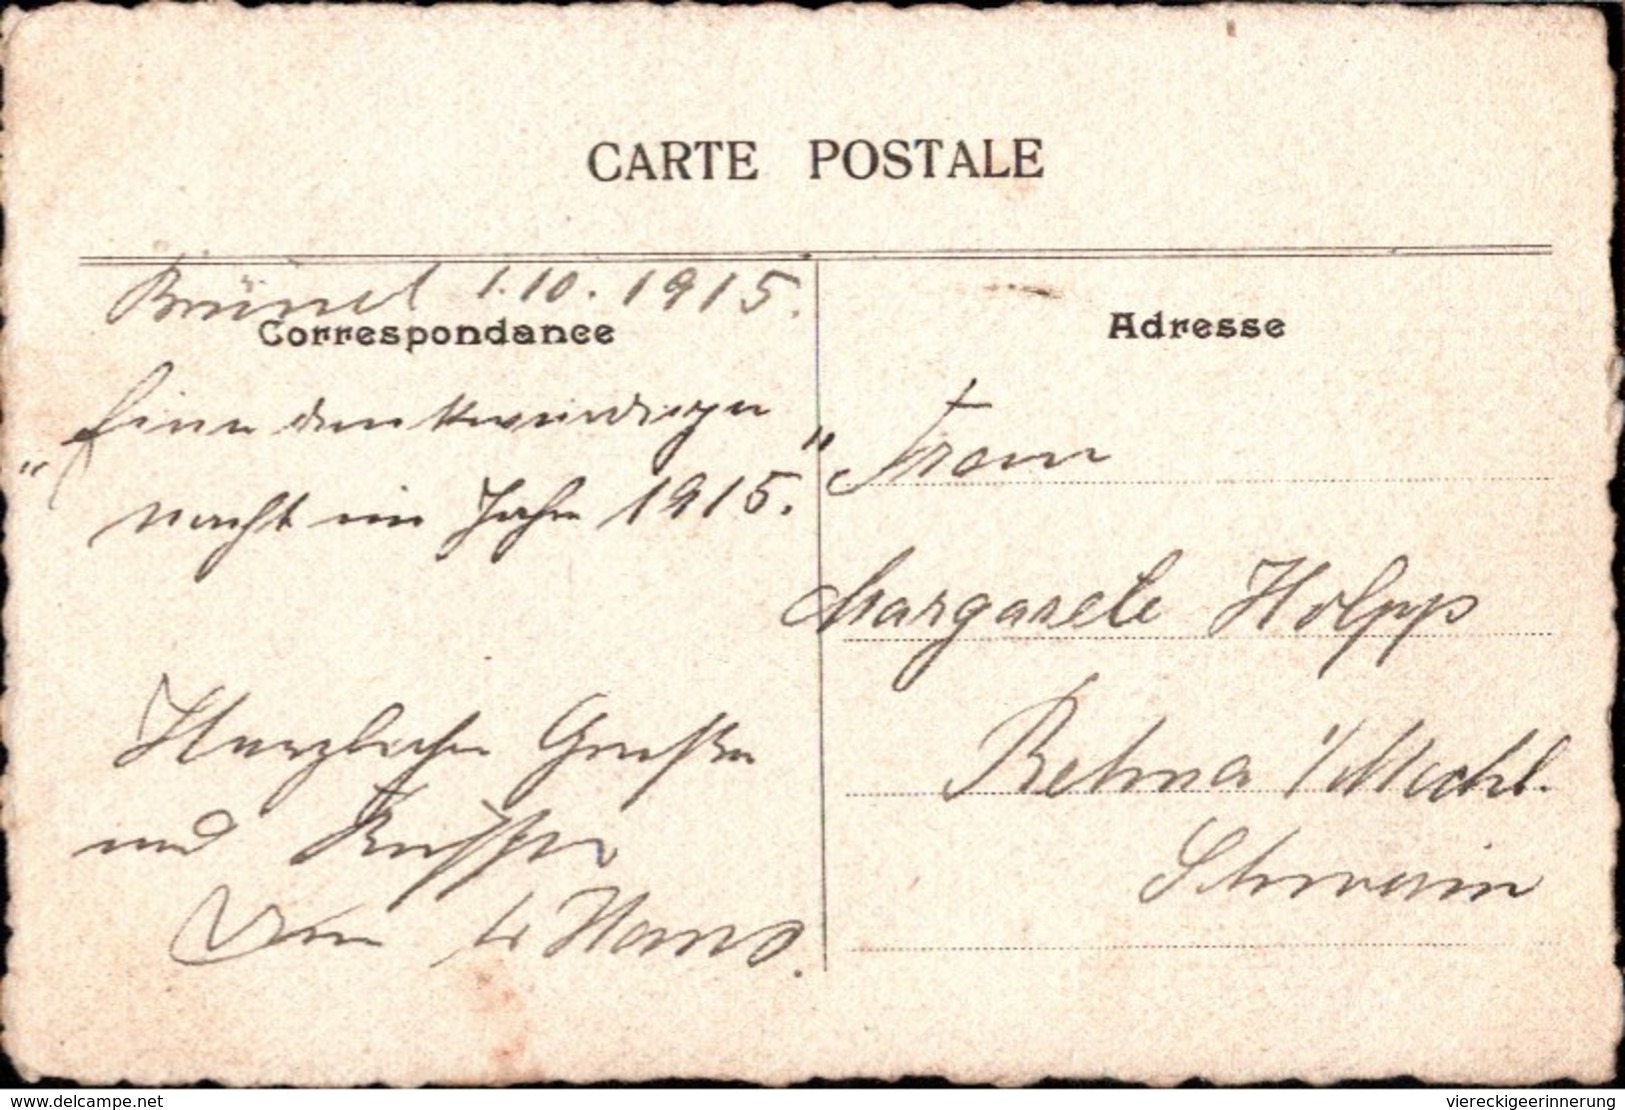 CARTE POSTALE
Brüssel 1.10.1915.
Correspondance
„Eine denkwürdige
Nacht im Jahre 1915."
Herzliche Grüße
und Küsse
Dein Hans.
Adresse
Frau
Margarete Holpp
Rehna i/Meckl.
Schwerin
delcampe.net
viereckigeerinnerung